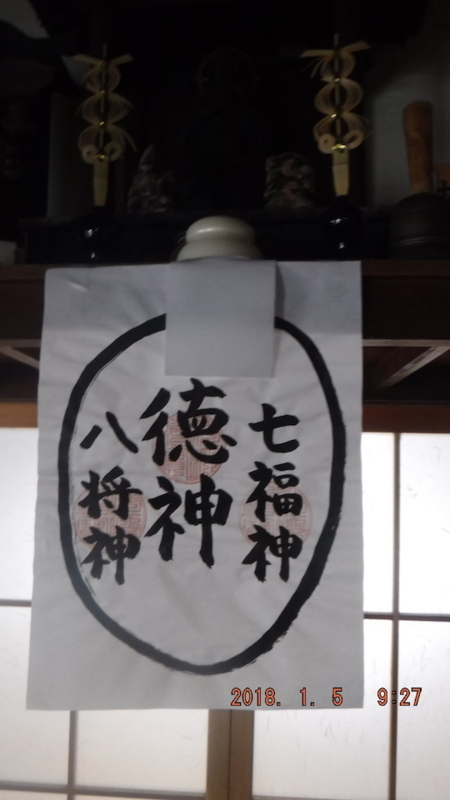 七福神
徳神
八将神
2018. 1. 5 9:27